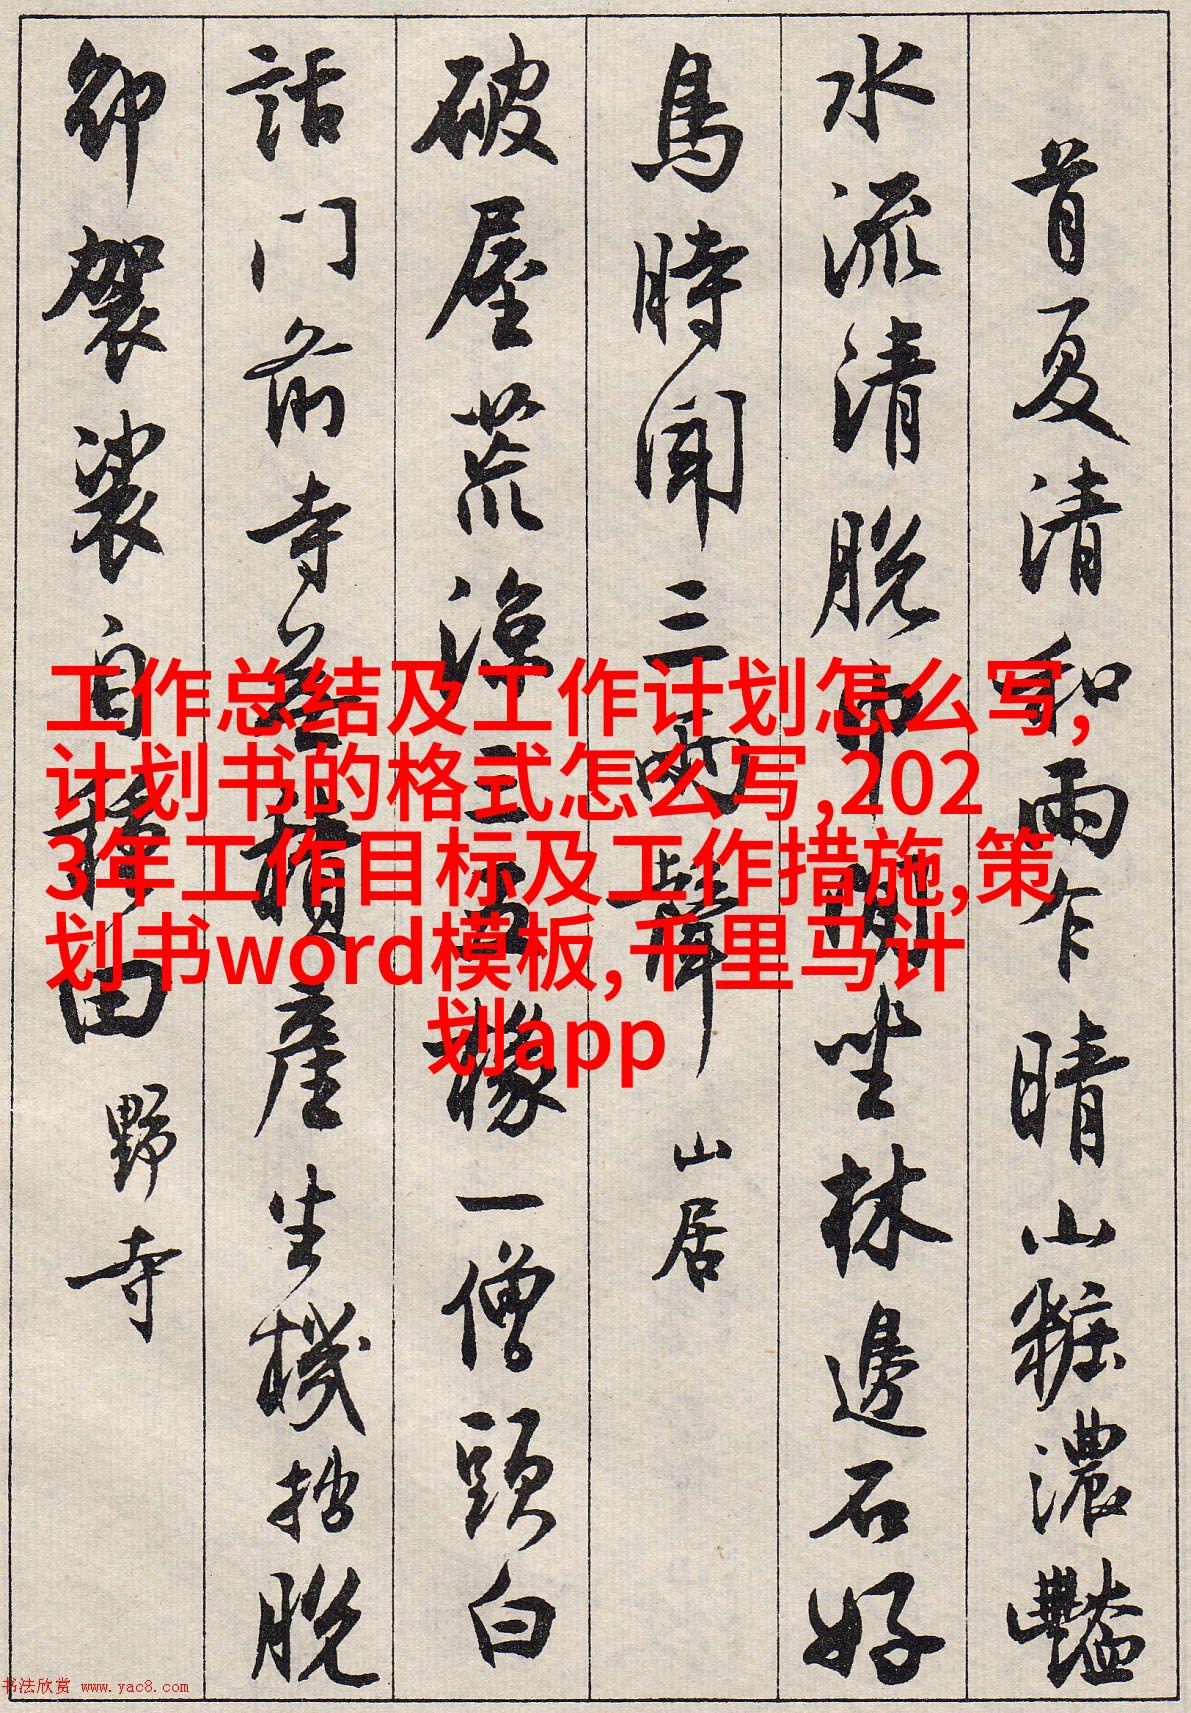 首夏清和雨乍晴山粧濃豔
水流清脫巾閒坐林邊石好
鳥時聞三兩聲 山居
破屋荒涼三五椽一僧頭白
話門前寺無積產生機拙脫
卻袈裟自種田 野寺
工作总结及工作计划怎么写,
计划书的格式怎么写,202
3年工作目标及工作措施,策
划书word模板,千里马计
划app
书法欣赏 www.yac8.com